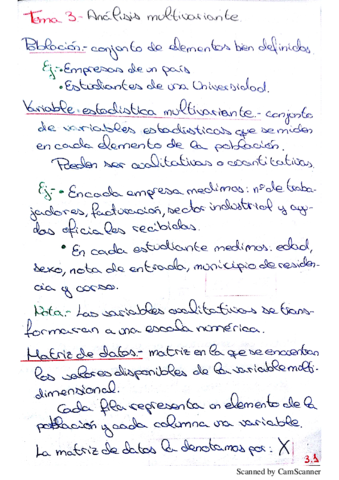 Tema 3.- Análisis multivariante.
Población.- conjunto de elementos bien definidos
Ej.- • Empresas de un país
• Estudiantes de una Universidad.
Variable estadística multivariante.- conjunto
de variables estadísticas que se miden
en cada elemento de la población.
Pueden ser cualitativas o cuantitativas.
Ej.- • En cada empresa medimos: nº de traba-
jadores, facturación, sector industrial y ayu-
das oficiales recibidas.
• En cada estudiante medimos: edad,
sexo, nota de entrada, municipio de residen-
cia y curso.
Nota.- Las variables cualitativas se trans-
formaran a una escala numérica.
Matriz de datos.- matriz en la que se encuentran
los valores disponibles de la variable multi-
dimensional.
Cada fila representa un elemento de la
población y cada columna una variable.
La matriz de datos la denotamos por: X
3.1
Scanned by CamScanner